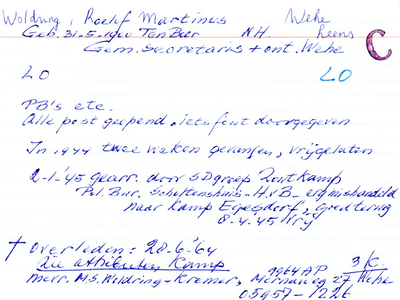 Woldring, Roelf Martinus Wehe
Geb. 31-5-1900 Ten Boer N.H. Leens
Gem. Secretaris + ont. Wehe C
LO LO
PB's etc.
Alle post geopend, iets fout doorgegeven
In 1944 twee weken gevangen, vrijgelaten
2-1-'45 gearr. door SD groep Zoutkamp
Pol. Bur. Scholtenshuis - HvB - erg mishandeld
naar Kamp , terug
8-4-45 vrij
† Overleden: 28-6-'64
Zie attributen Kamp 3/C
Mevr. M.S. Woldring-Kremer, 1964 AP Mernaweg 27 Wehe
05957-1226